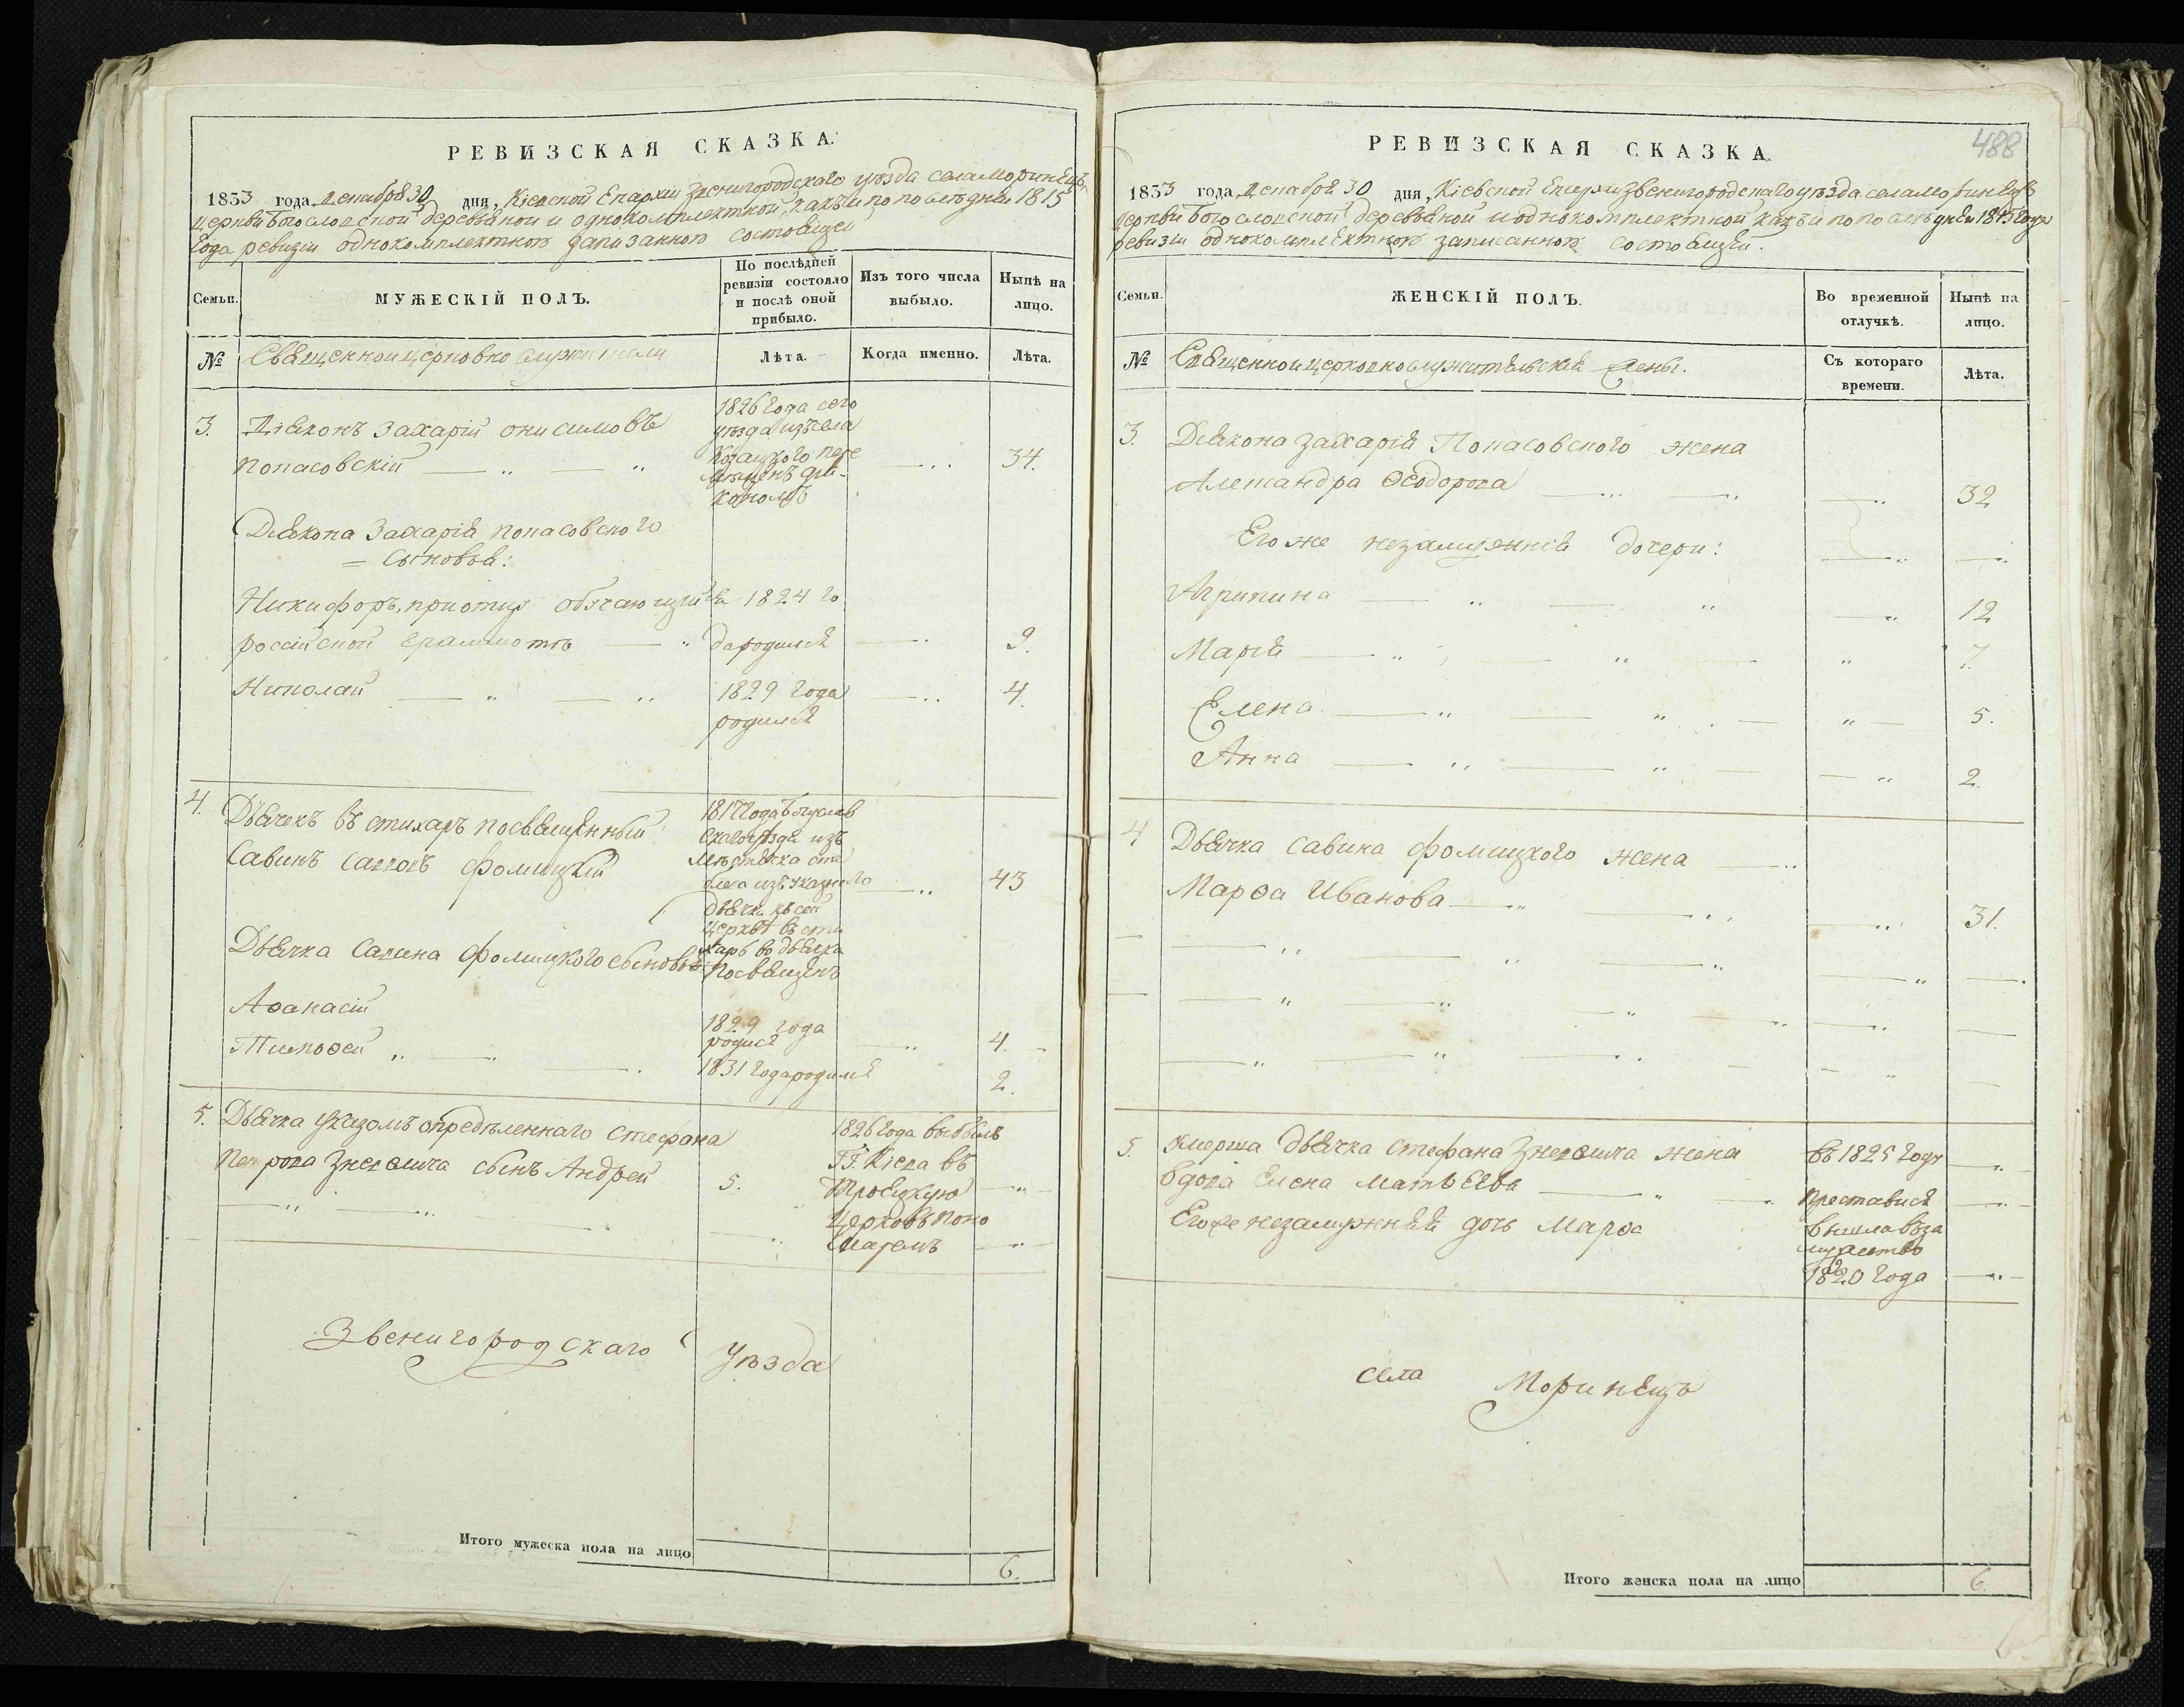 РЕВИЗСКАЯ СКАЗКА.
1833 года декабря 30 дня, Кіевской Епархіи Звенигородскаго уѣзда села Моринецъ
церкви Богословской деревяной и однокомплектной, какъ и по последней 1815
года ревизіи однокомплектною записанною состоящей
Семьи.
МУЖЕСКІЙ ПОЛЪ.
По послѣдней ревизіи состояло и послѣ оной прибыло.
Изъ того числа выбыло.
Нынѣ на лицо.
№
Священно и церковно служители
Лѣта.
Когда именно.
Лѣта.
3.
Діяконъ Захарій Онисимовъ
Попасовскій
1826 года сего
уѣзда изъ села
Козацкого пере
мѣщенъ дія-
кономъ
34.
Діякона Захарія Попасовского
Сыновья:
Никифоръ, при отцу обучающийся
россійской грамотѣ
1824 го
да родился
9.
Николай
1829 года
родился
4.
4.
Дьячекъ въ стихарь посвященный
Савинъ Саввовъ Фомицкій
1817 года Богуслав
скаго уѣзда изъ
Местечка сте
блева изъ указного
дьячка къ сей
церкве в сти
харь во дьячка
посвященъ
43
Дьячка Савина Фомицкого сыновья:
Афанасій
1829 года
родися
4.
Тимофей
1831 года родился
2.
5.
Дьячка указомъ определеннаго Стефана
Петрова Зневовича сынъ Андрей
5.
1826 года выбылъ
Г. Кіева въ
Троецкую
Церковь поно
маремъ
Звенигородскаго Уѣзда
Итого мужеска пола на лицо
6.
488
РЕВИЗСКАЯ СКАЗКА.
1833 года декабря 30 дня, Кіевской Епархіи Звенигородскаго уѣзда села Моринецъ
церкви Богословской деревяной и однокомплектной какъ и по последней 1815 года
ревизіи однокомплектною записанною состоящей.
Семьи.
ЖЕНСКІЙ ПОЛЪ.
Во временной отлучкѣ.
Нынѣ на лицо.
№
Священно и церковнослужительскія жены.
Съ котораго времени.
Лѣта.
3.
Діякона Захарія Попасовского жена
Александра Феодорова
32
Его же незамужнія дочери:
Агрипина
12
Марія
7.
Елена
5.
Анна
2.
4
Дьячка Савина Фомицкого жена
Марѳа Иванова
31.
5.
Умерша дьячка Стефана Зневовича жена
вдова Елена Матвеева
въ 1825 году
преставися
Его же незамужняя дочь Марѳа
вишла въ за
мужство
1820 года
села Моринецъ
Итого женска пола на лицо
6